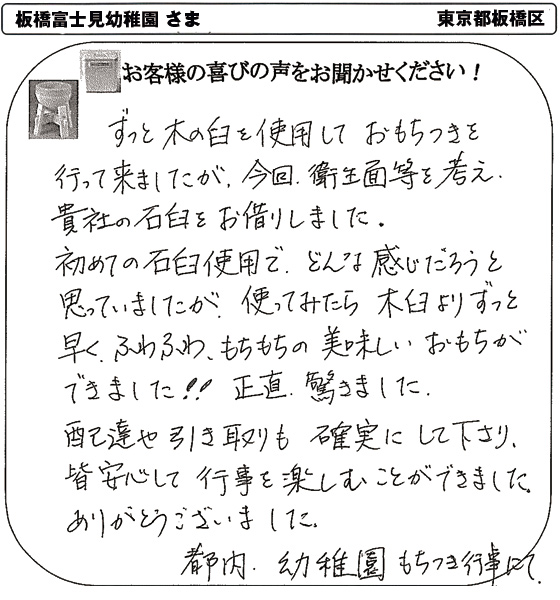 板橋富士見幼稚園 さま 東京都板橋区
お客様の喜びの声をお聞かせください！
ずっと木の臼を使用して おもちつきを
行って来ましたが、今回、衛生面等を考え、
貴社の石臼をお借りしました。
初めての石臼使用で、どんな感じだろうと
思っていましたが、使ってみたら 木臼よりずっと
早く、ふわふわ、もちもちの 美味しい おもちが
できました!! 正直、驚きました。
配達や引き取りも 確実にして下さり、
皆安心して 行事を楽しむことができました。
ありがとうございました。
都内、幼稚園 もちつき行事にて。